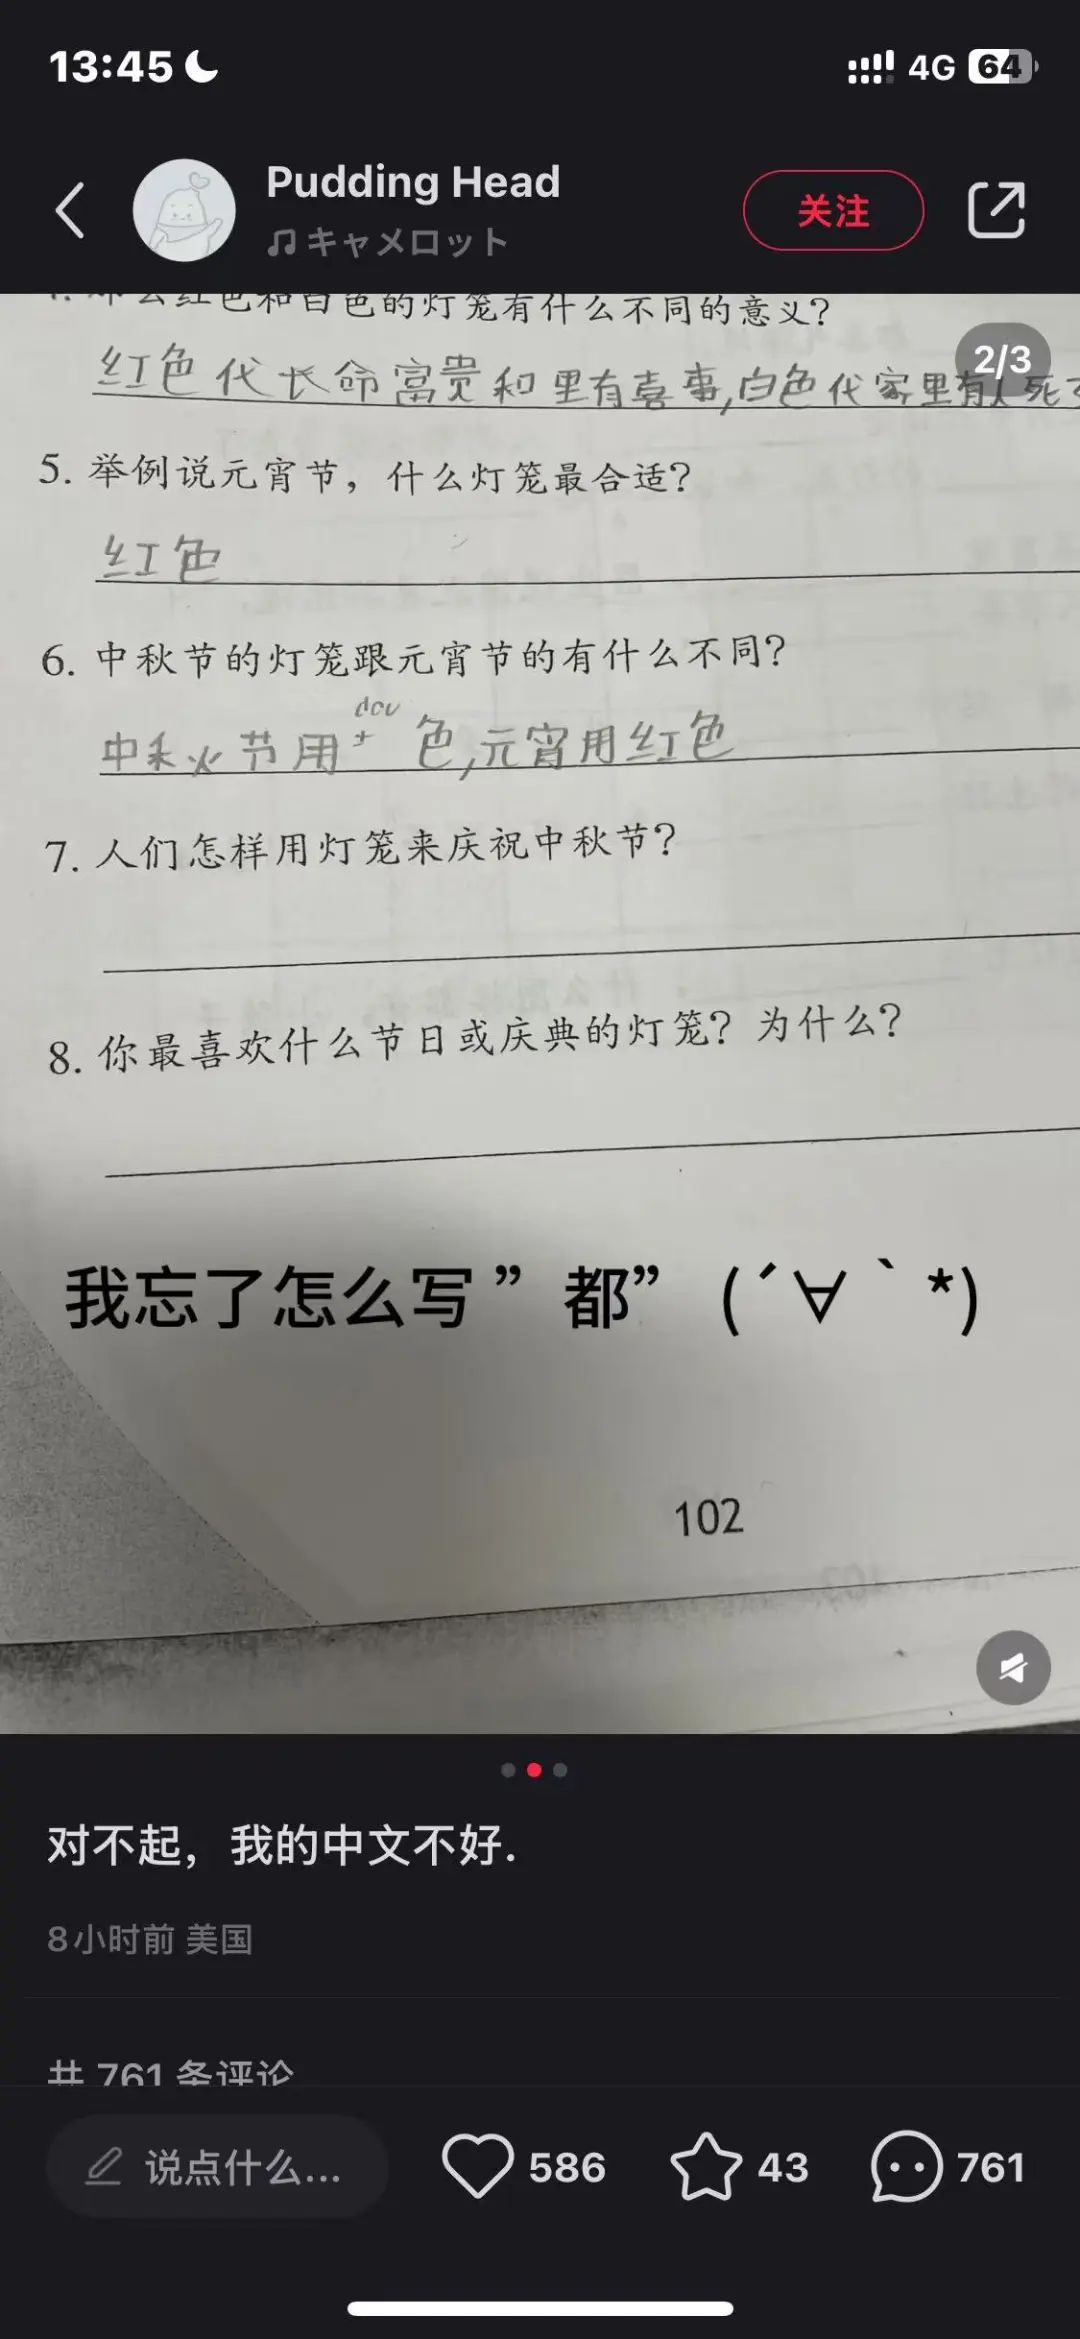 13:45
4G 64
Pudding Head
关注
キャメロット
么红色和白色的灯笼有什么不同的意义?
2/3
红色代长命富贵和里有喜事,白色代家里有人死
5. 举例说元宵节，什么灯笼最合适?
红色
6. 中秋节的灯笼跟元宵节的有什么不同?
dou
中秋节用 色,元宵用红色
7. 人们怎样用灯笼来庆祝中秋节?
8. 你最喜欢什么节日或庆典的灯笼? 为什么?
我忘了怎么写 ” 都” (´∀｀*)
102
对不起，我的中文不好.
8小时前 美国
共 761 条评论
说点什么... 586 43 761